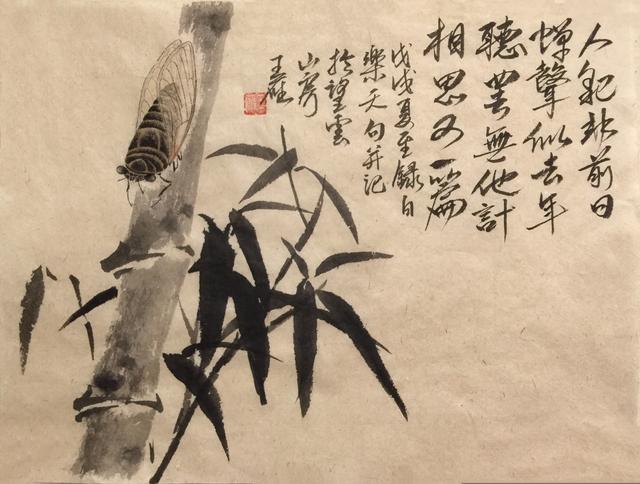 人貌非前日
蟬聲似去年
聽罷無他計
相思又一篇
戊戌夏至錄白
樂天句并記
於望雲
山房